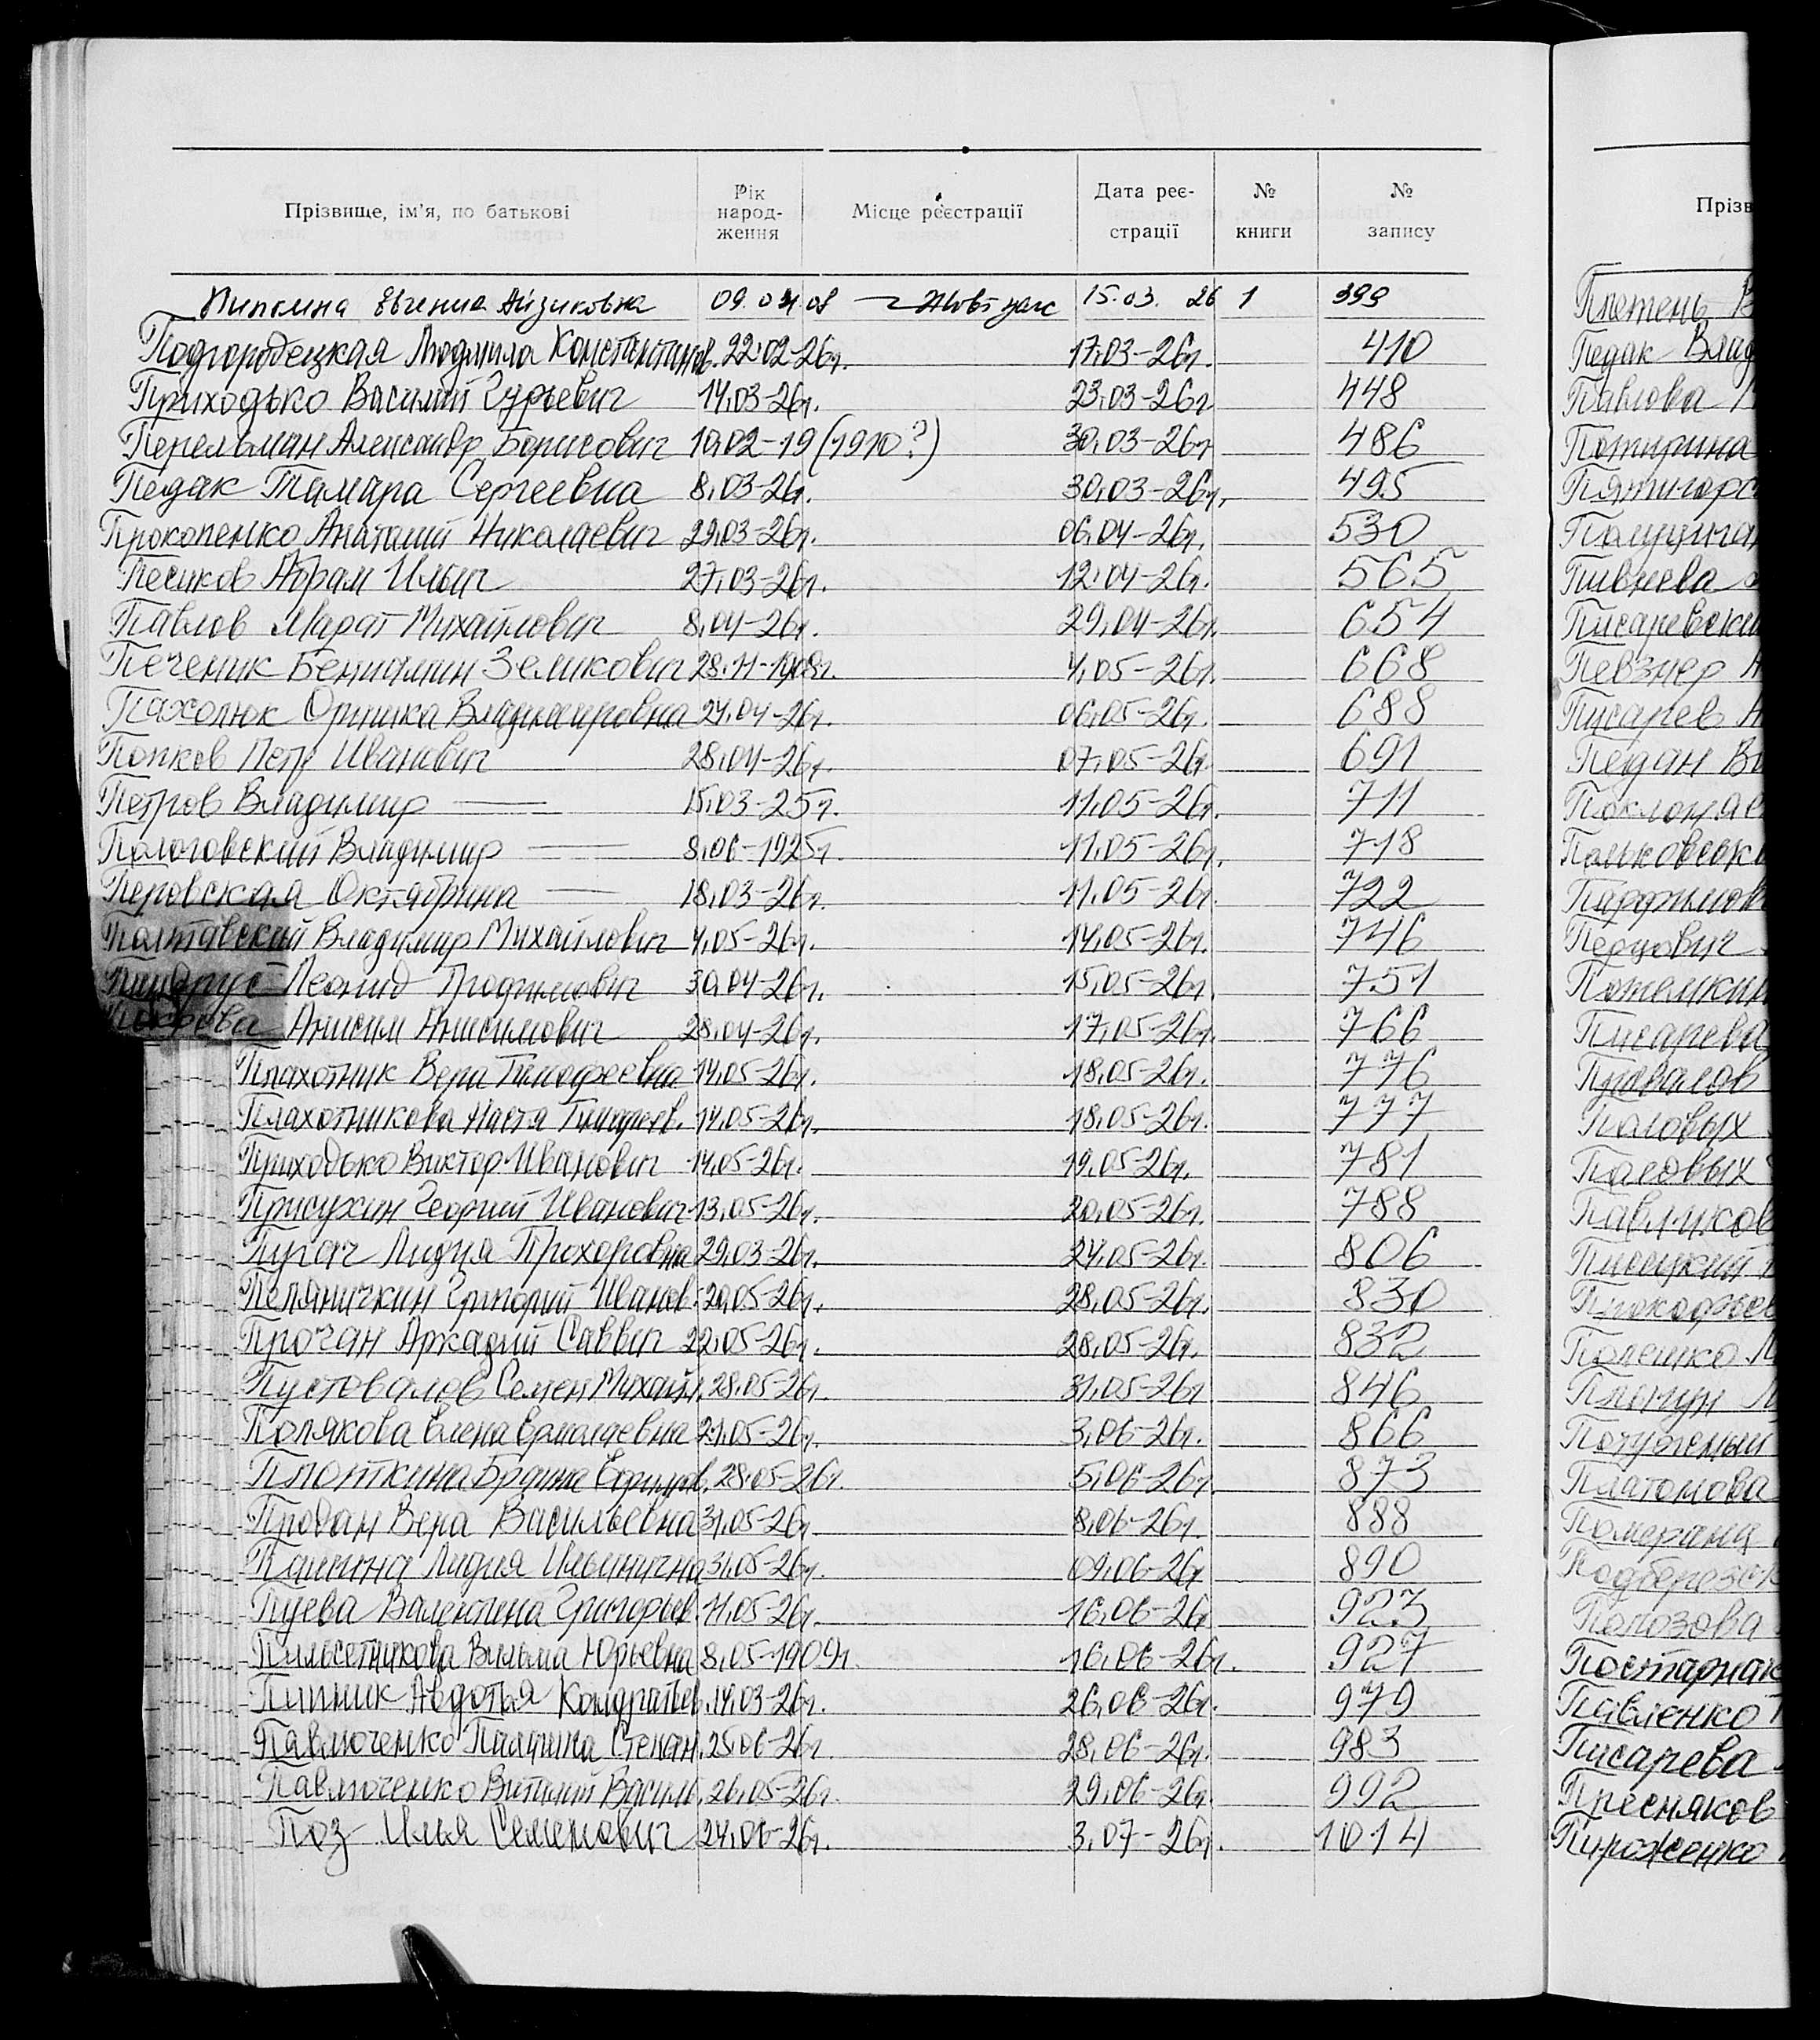 Прізвище, ім'я, по батькові | Рік народження | Місце реєстрації | Дата реєстрації | № книги | № запису
Евгения Айзиковна 09.04.08 15.03. 26 1 399
Подгородецкая Людмила Константинов. 22.02-26г. 17.03-26г. 410
Приходько Василий Гурьевич 14.03-26г. 23.03-26г 448
Перельман Александр Борисович 10.02-19(1910?) 30.03-26г 486
Педак Тамара Сергеевна 8.03-26г. 30.03-26г. 495
Прокопенко Анатолий Николаевич 29.03-26г. 06.04-26г. 530
Песиков Абрам Ильич 27.03-26г. 12.04-26г. 565
Павлов Марат Михайлович 8.04-26г. 29.04-26г. 654
Печеник Бениамин Зеликович 28.11-1908г. 4.05-26г. 668
Пахолюк Владимировна 24.04-26г. 06.05-26г. 688
Попков Петр Иванович 28.04-26г. 07.05-26г. 691
Петров Владимир — 15.03-25г. 11.05-26г. 711
Пологовский Владимир — 8.06-1925г. 11.05-26г. 718
Перовская Октябрина — 18.03-26г. 11.05-26г. 722
Полтавский Владимир Михайлович 4.05-26г. 14.05-26г. 746
Леонид Трофимович 30.04-26г. 15.05-26г. 751
Анисим Анисимович 28.04-26г. 17.05-26г. 766
Плахотник Вера Тимофеевна 14.05-26г. 18.05-26г. 776
Плахотникова Настя Тимофеев. 14.05-26г. 18.05-26г. 777
Приходько Виктор Иванович 14.05-26г. 19.05-26г. 781
Присухин Георгий Иванович 13.05-26г. 20.05-26г. 788
Пугач Лидия Прохоровна 29.03-26г. 24.05-26г. 806
Пеляничкин Григорий Иванов. 20.05-26г. 28.05-26г. 830
Прочан Аркадий Саввич 22.05-26г. 28.05-26г. 832
Пустовалов Семен Михайл. 28.05-26г. 31.05-26г 846
Полякова Елена Ермолаевна 21.05-26г. 3.06-26г. 866
Плоткина Ефимов. 28.05-26г. 5.06-26г. 873
Продан Вера Васильевна 31.05-26г. 8.06-26г. 888
Лидия Ильинична 31.05-26г. 09.06-26г 890
Пуева Валентина Григорьев. 11.05-26г. 16.06-26г 923
Пильсетникова Вильма Юрьевна 8.05-1909г. 16.06-26г. 927
Пипник Авдотья Кондратьев. 14.03-26г. 26.06-26г. 979
Павлюченко Степан. 25.06-26г. 28.06-26г. 983
Павлюченко Виталий Василь. 26.05-26г. 29.06-26г. 992
Поз Илья Семенович 24.06-26г. 3.07-26г. 1014
Прізв
Плетень В
Педак Влад
Павлова
Потурина
Пятигорс
Пивнева
Писаревски
Певзнер А
Писарев А
Педан Ви
Поклоняе
Польковски
Парфимов
Перцович
Потемкин
Писарева
Половых
Половых
Павликов
Писецкий
Прокофьев
Полешко
Платонова
Померанц
Подберезск
Полозова
Постарнак
Павленко
Писарева
Пресняков
Пироженко